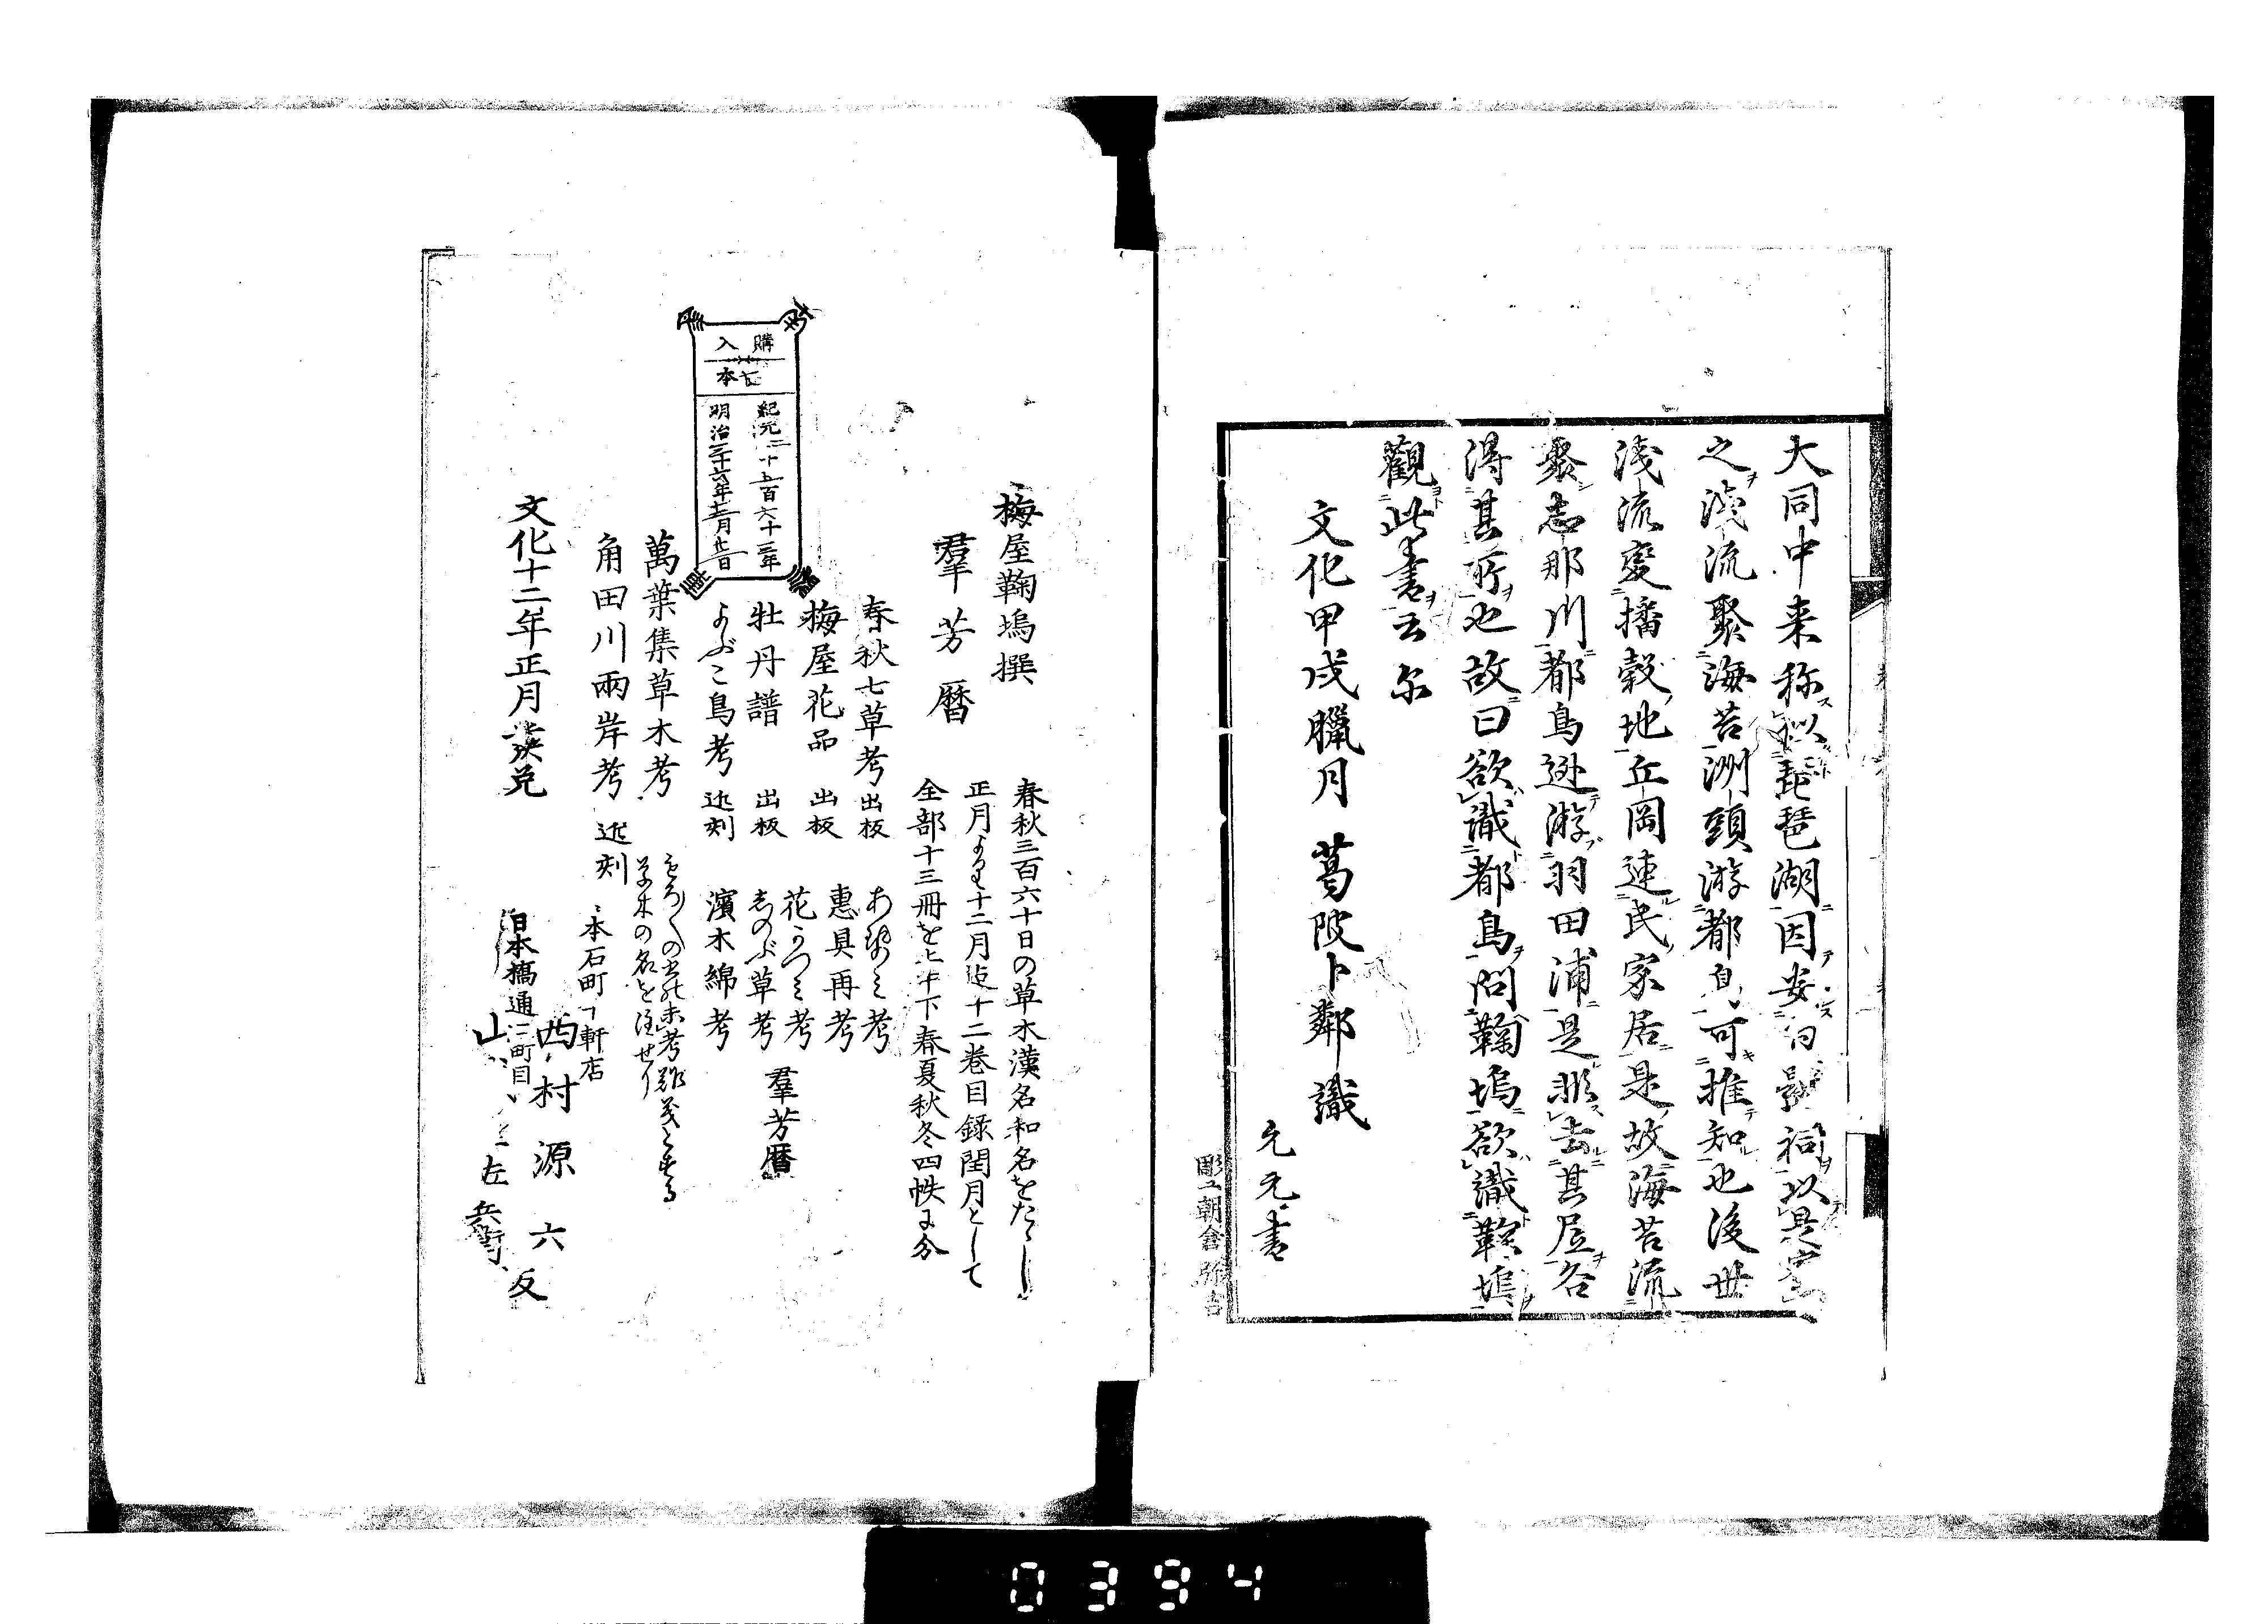 大同中来称以琵琶湖因安白髭祠以是
之浅流聚海苔洲頭游都鳥可推知也後世
浅流変播穀地丘岡連民家居是故海苔流
聚志那川都鳥遊游羽田浦是非去其居各
得其所也故曰欲識都鳥問鞠塢欲識鞠塢
観此書云尓
文化甲戌臘月 葛陂卜鄰識
元元書
彫工朝倉弥吉
梅屋鞠塢撰
羣芳暦
春秋三百六十日の草木漢名和名をたゝし
正月より十二月迄十二巻目録閏月として
全部十三冊を上下春夏秋冬四帙に分
春秋七草考 出板
梅屋花品 出板
牡丹譜 出板
よぶこ鳥考 近刻
あぢさゐ考
恵具再考
花かつみ考
しのぶ草考
濱木綿考
羣芳暦
萬葉集草木考
草木の名を注せり
角田川兩岸考 近刻
文化十二年正月発兌
本石町十軒店
西村源六
日本橋通二町目
山左兵衛
購入
本
紀元二千五百六十三年
明治三十六年十二月廿一日
0394